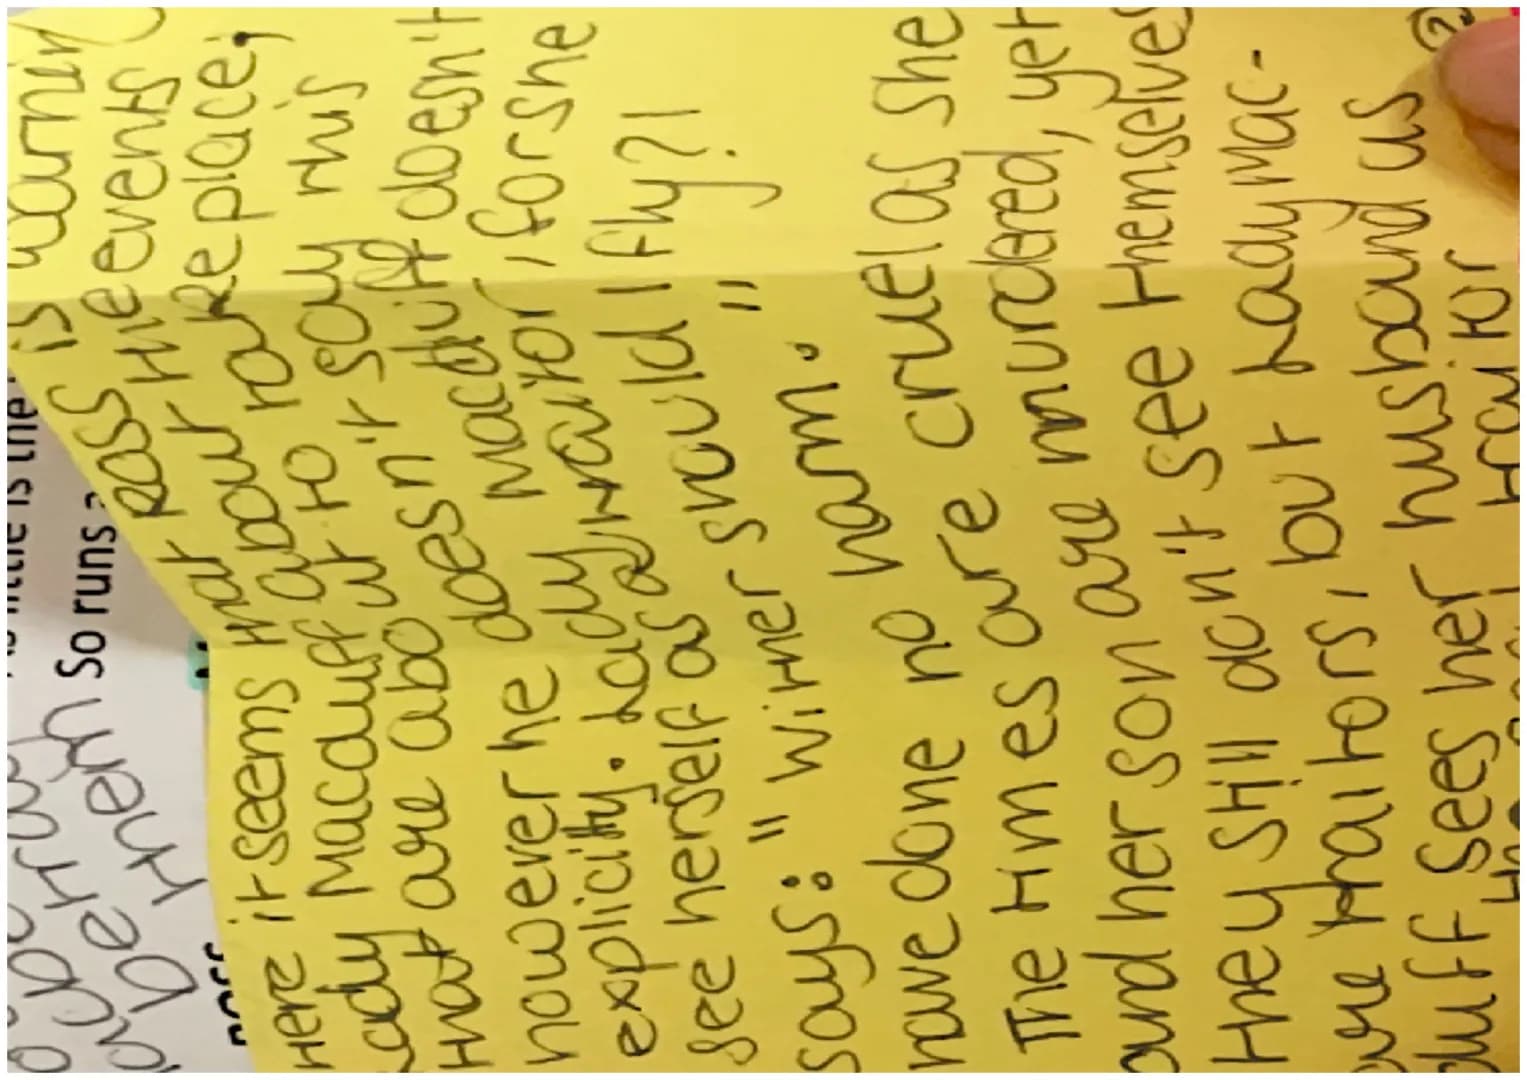 Here it seems that Ross is warnin
Lady Macduff about the events
that are abo ut to take place;
however he doesn't say this
explicitly. Lady Macduff doesn't
see herself as a traitor, for she
says: "Wither should I fly?! I
have done no harm."
The times are cruel as she
and her son are murdered, yet
they still don't see themselves
are traitors, but Lady Mac-
duff sees her husband as
traitor
them
So runs
is the
②